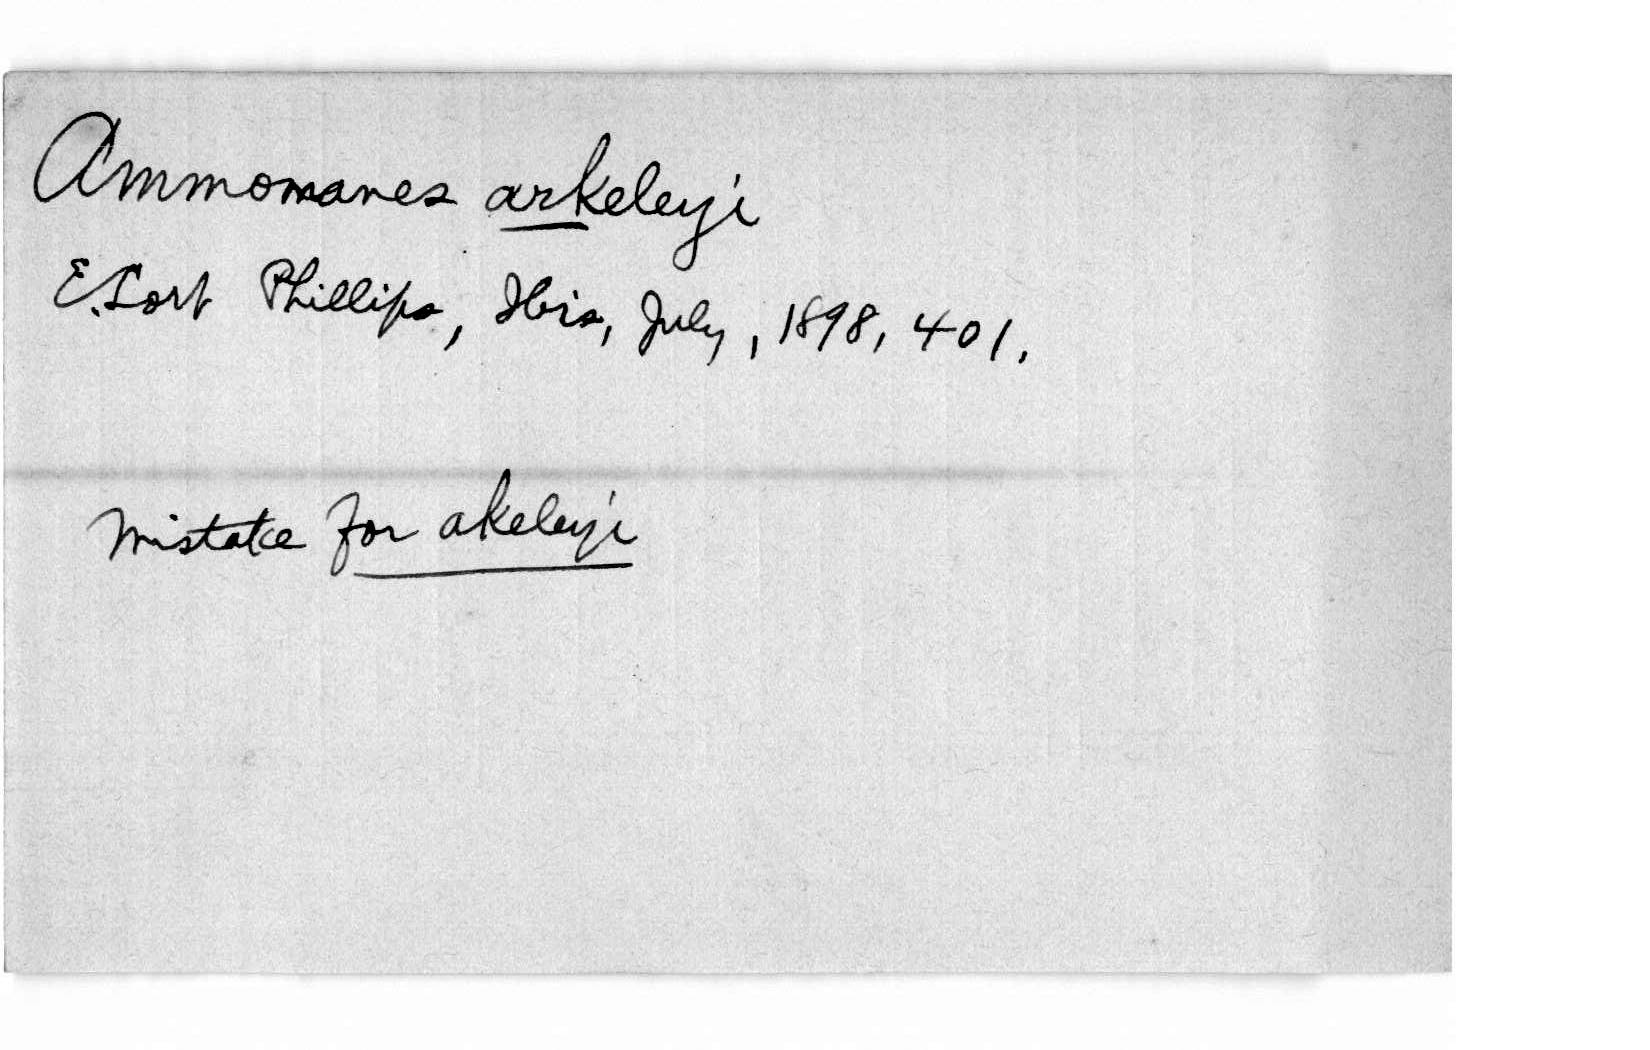 Ammomanes arkeleyi
E. Lort Phillips, Ibis, July, 1898, 401.
Mistake for akeleyi